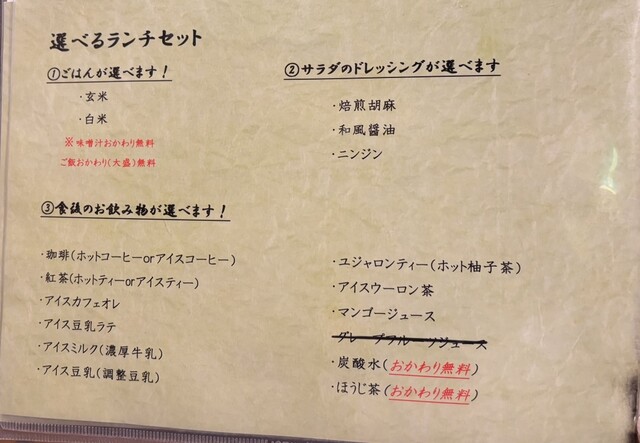 選べるランチセット
①ごはんが選べます！
・玄米
・白米
※味噌汁おかわり無料
ご飯おかわり(大盛)無料
②サラダのドレッシングが選べます
・焙煎胡麻
・和風醤油
・ニンジン
③食後のお飲み物が選べます！
・珈琲(ホットコーヒーorアイスコーヒー)
・紅茶(ホットティーorアイスティー)
・アイスカフェオレ
・アイス豆乳ラテ
・アイスミルク(濃厚牛乳)
・アイス豆乳(調整豆乳)
・ユジャロンティー(ホット柚子茶)
・アイスウーロン茶
・マンゴージュース
・グレープフルーツジュース
・炭酸水(おかわり無料)
・ほうじ茶(おかわり無料)